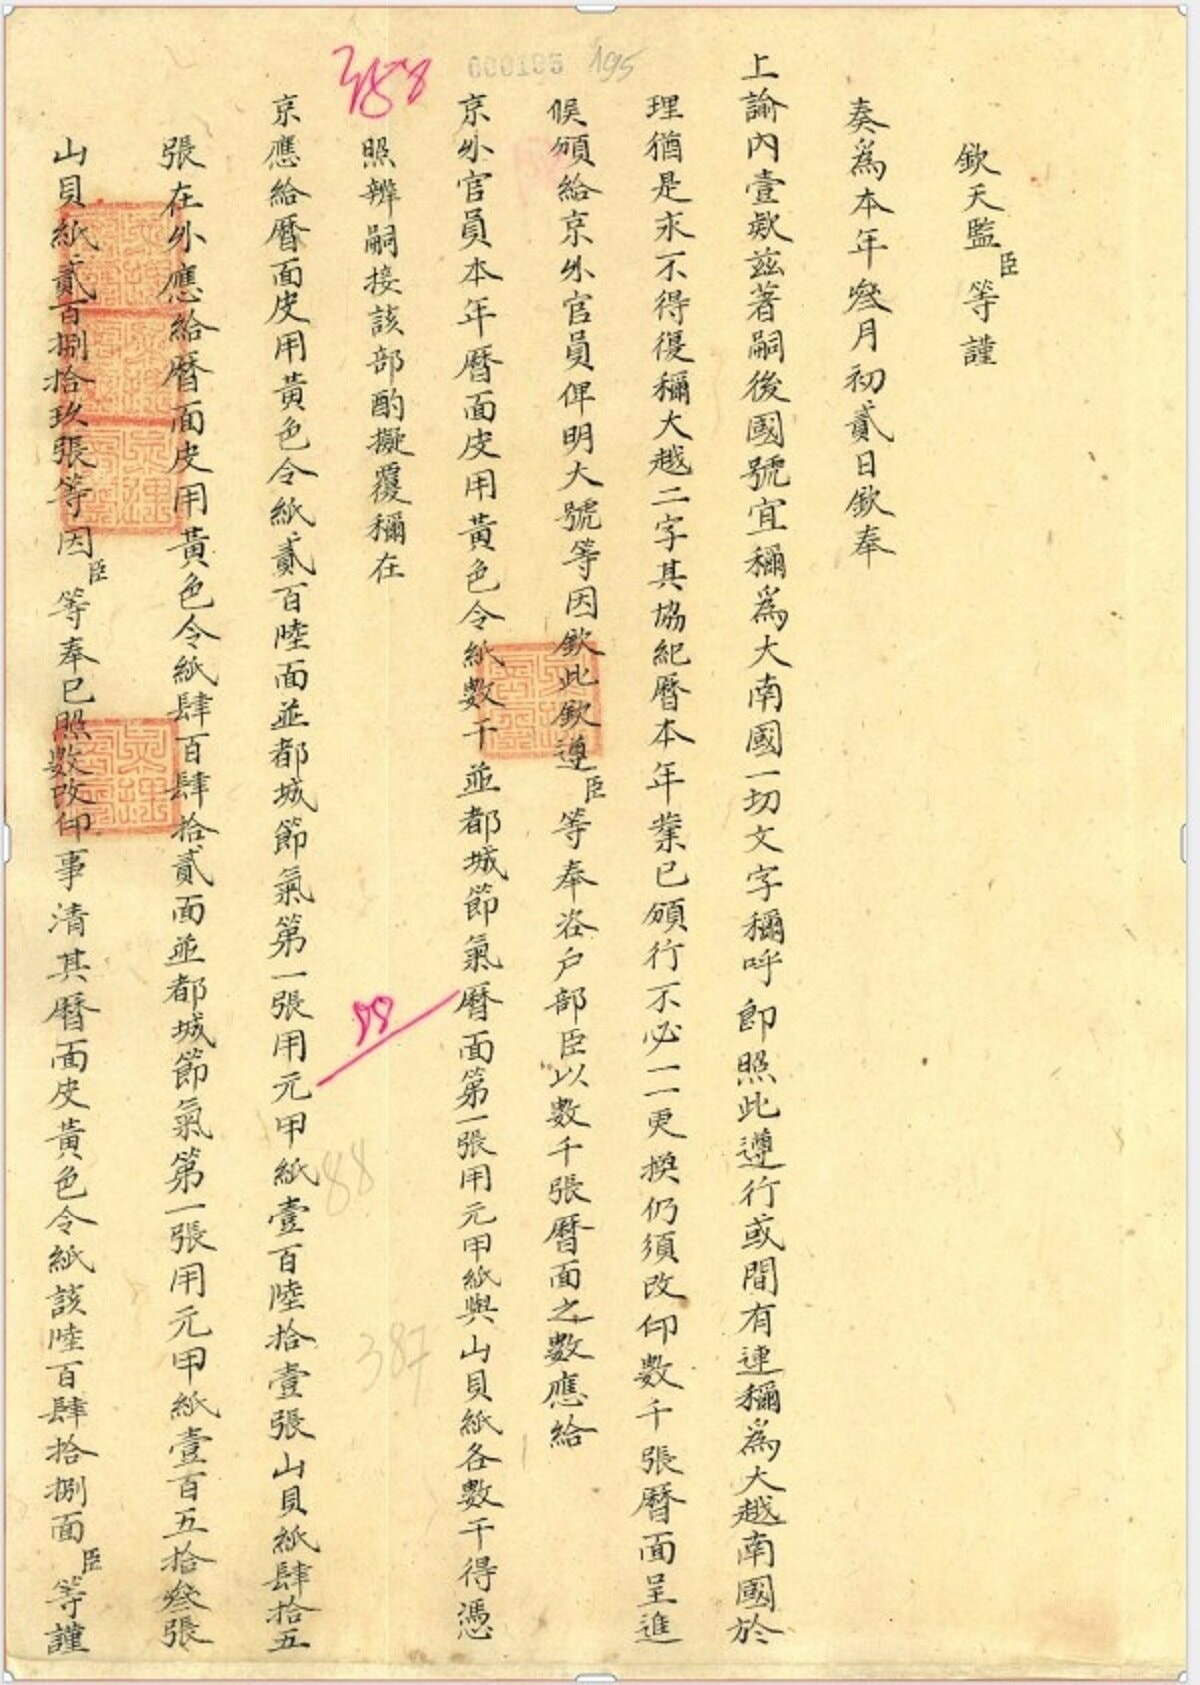 000195 195
388
欽天監臣等謹
奏爲本年叄月初貳日欽奉
上諭內壹欵茲著嗣後國號宜稱爲大南國一切文字稱呼卽照此遵行或間有連稱爲大越南國於
理猶是求不得復稱大越二字其協紀曆本年業已頒行不必一一更換仍須改印數千張曆面呈進
候頒給京外官員俾明大號等因欽此欽遵臣等奉咨户部臣以數千張曆面之數應給
京外官員本年曆面皮用黃色令紙數千並都城節氣曆面第一張用元甲紙與山貝紙各數千得憑
照辨嗣接該部酌擬覆稱在
京應給曆面皮用黃色令紙貳百陸面並都城節氣第一張用元甲紙壹百陸拾壹張山貝紙肆拾五
張在外應給曆面皮用黃色令紙肆百肆拾貳面並都城節氣第一張用元甲紙壹百五拾叄張
山貝紙貳百捌拾玖張等因臣等奉已照數改印事清其曆面皮黃色令紙該陸百肆拾捌面臣等謹
88
88
387